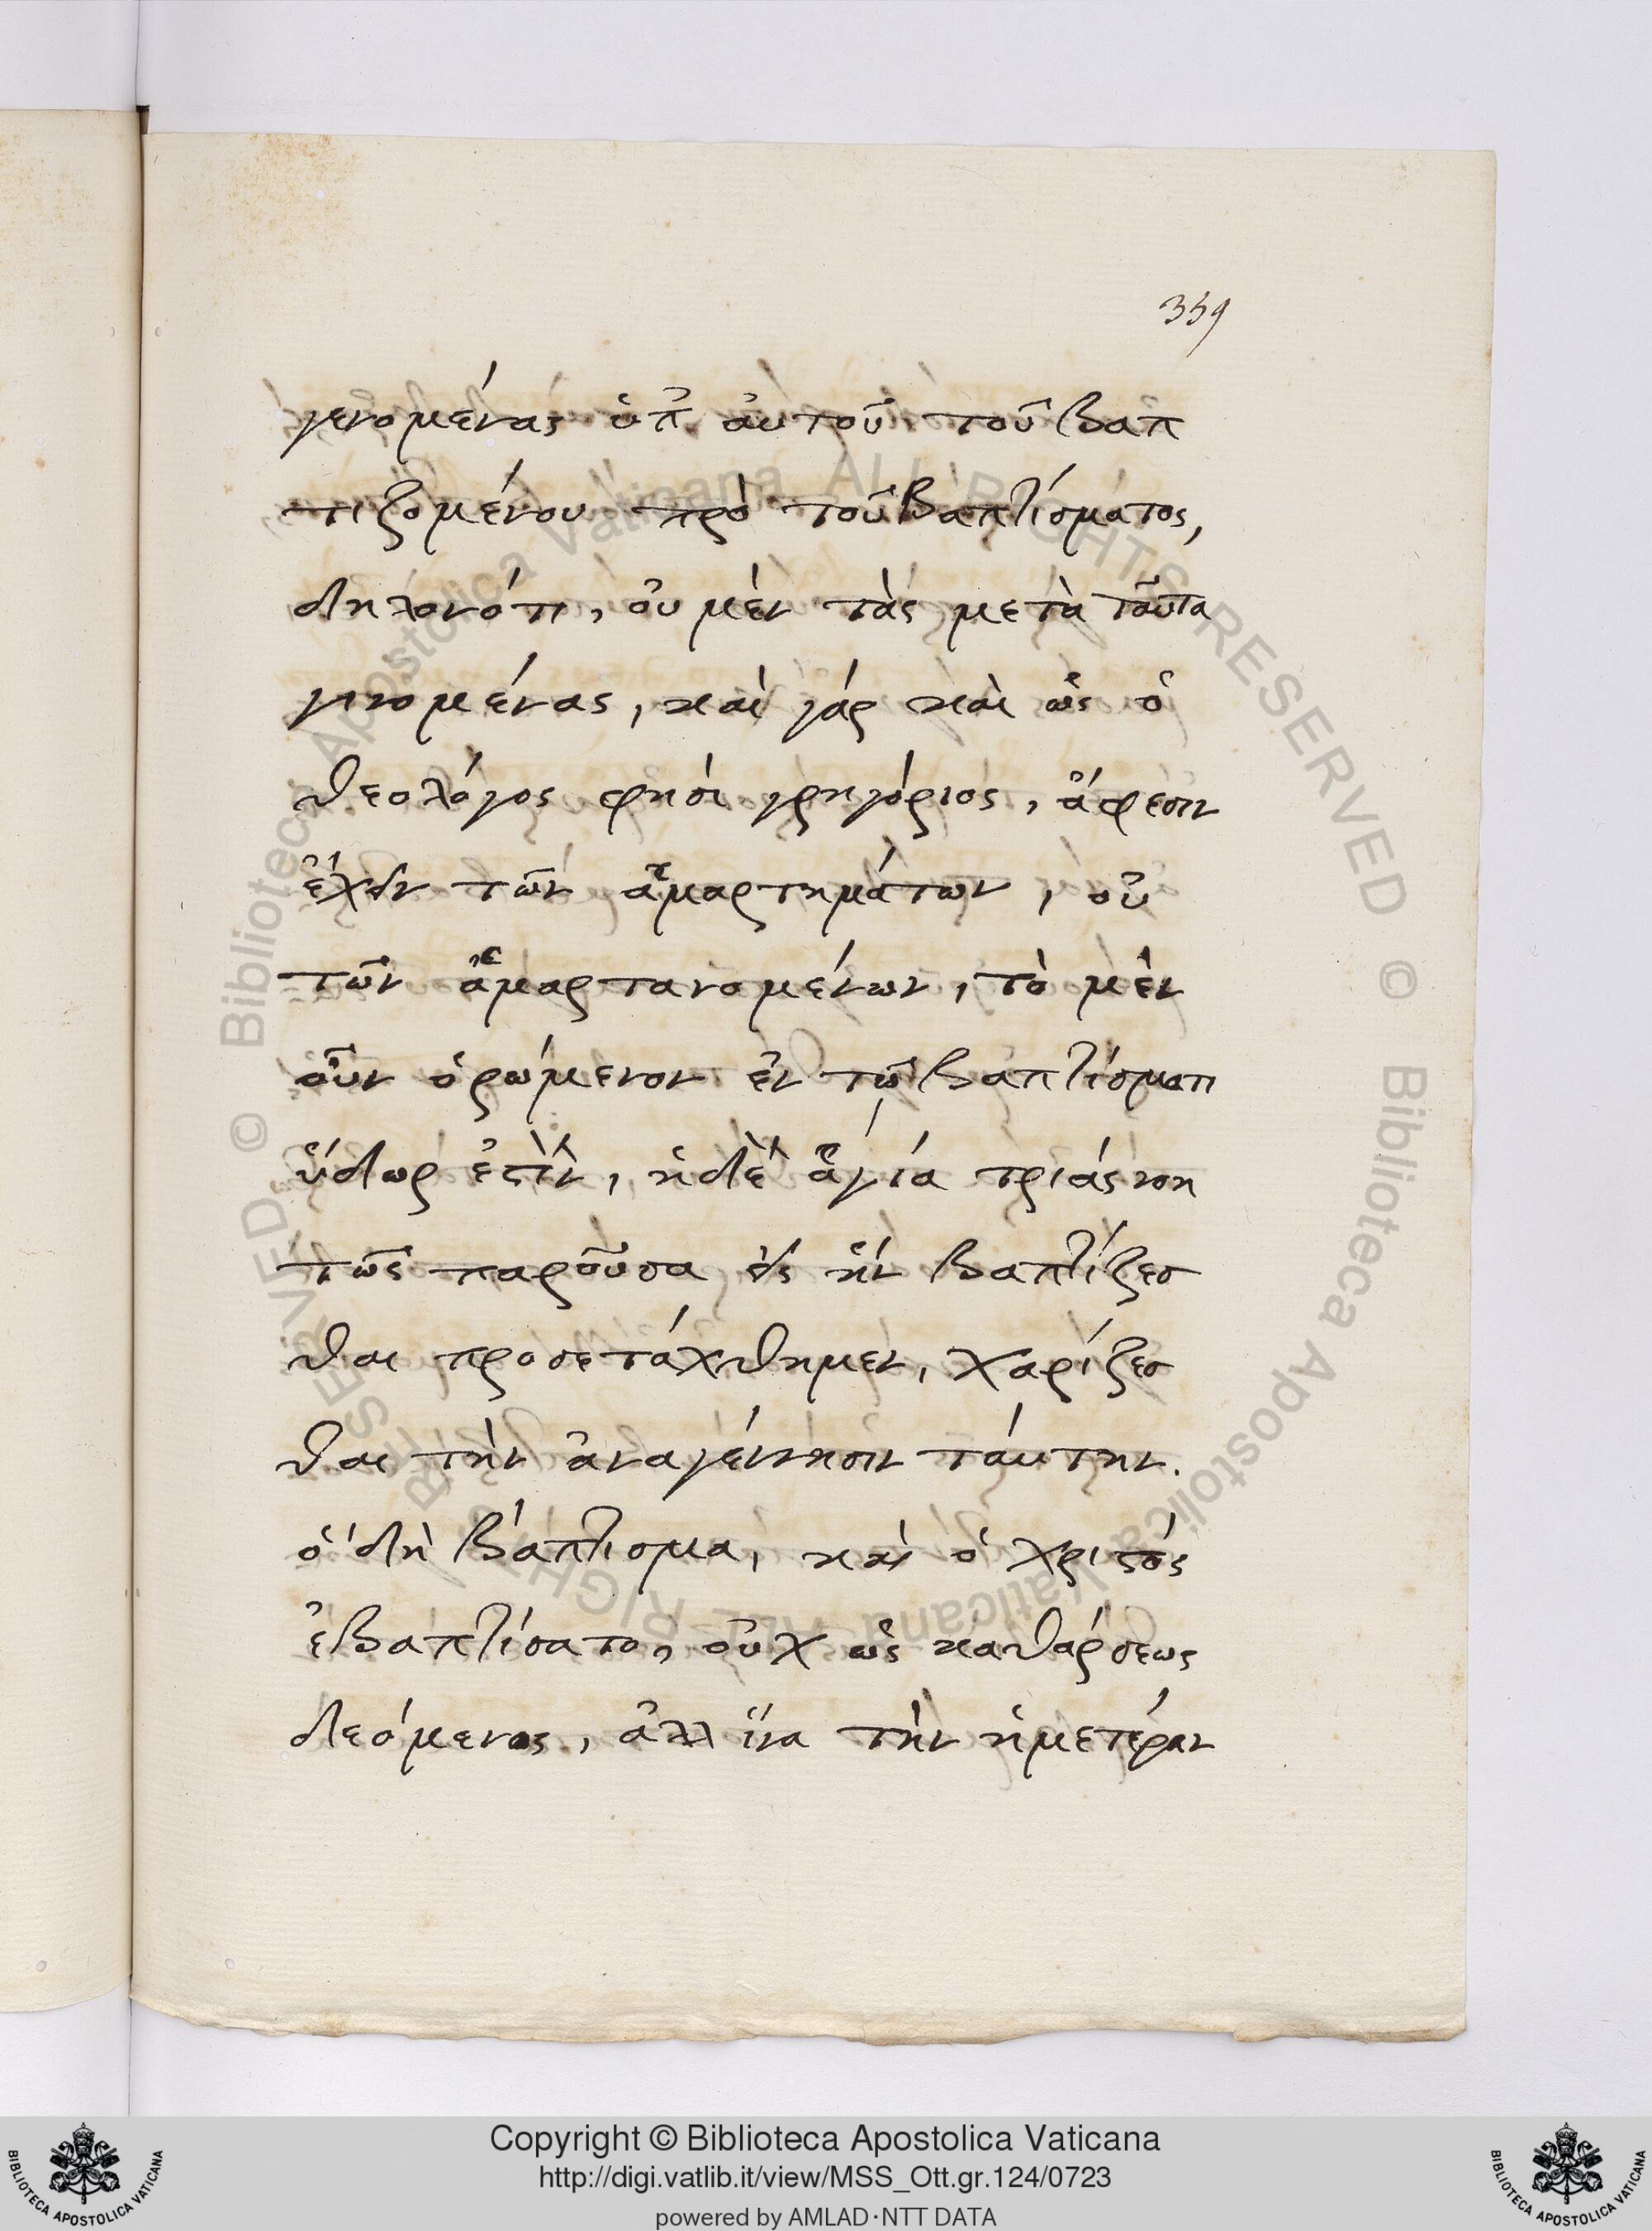 359
γενομένας ὑπ' αὐτοῦ τοῦ βαπ
τιζομένου πρὸ τοῦ βαπτίσματος,
δηλονότι, οὐ μὲν τὰς μετὰ ταῦτα
γινομένας, καὶ γάρ καὶ ὡς ὁ
θεολόγος φησὶ γρηγόριος, ἄφεσιν
ἔχειν τῶν ἁμαρτημάτων, οὐ
τῶν ἁμαρτανομένων, τὸ μὲν
οὖν ὁρώμενον ἐν τῶ βαπτίσματι
ὕδωρ ἐστὶν, ἡ δὲ ἁγία τριάς νοη
τῶς παροῦσα εἰς ἣν βαπτίζεσ
θαι προσετάχθημεν, χαρίζεσ
θαι τὴν ἀναγέννησιν ταύτην.
ὃ δὴ βάπτισμα, καὶ ὁ χριστός
ἐβαπτίσατο, οὐχ ὡς καθάρσεως
δεόμενος, ἀλλ ἵνα τὴν ἡμετέραν
© Biblioteca Apostolica Vaticana ALL RIGHTS RESERVED © Biblioteca Apostolica Vaticana ALL RIGHTS RESERVED
Copyright © Biblioteca Apostolica Vaticana
http://digi.vatlib.it/view/MSS_Ott.gr.124/0723
powered by AMLAD·NTT DATA
BIBLIOTECA APOSTOLICA VATICANA
BIBLIOTECA APOSTOLICA VATICANA